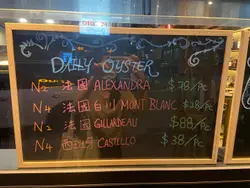 DAILY OYSTER
N2 法國 ALEXANDRA $78/Pc
N4 法國 MONT BLANC $28/Pc
N2 法國 GILLARDEAU $88/Pc
N4 西 CASTELLO $38/Pc